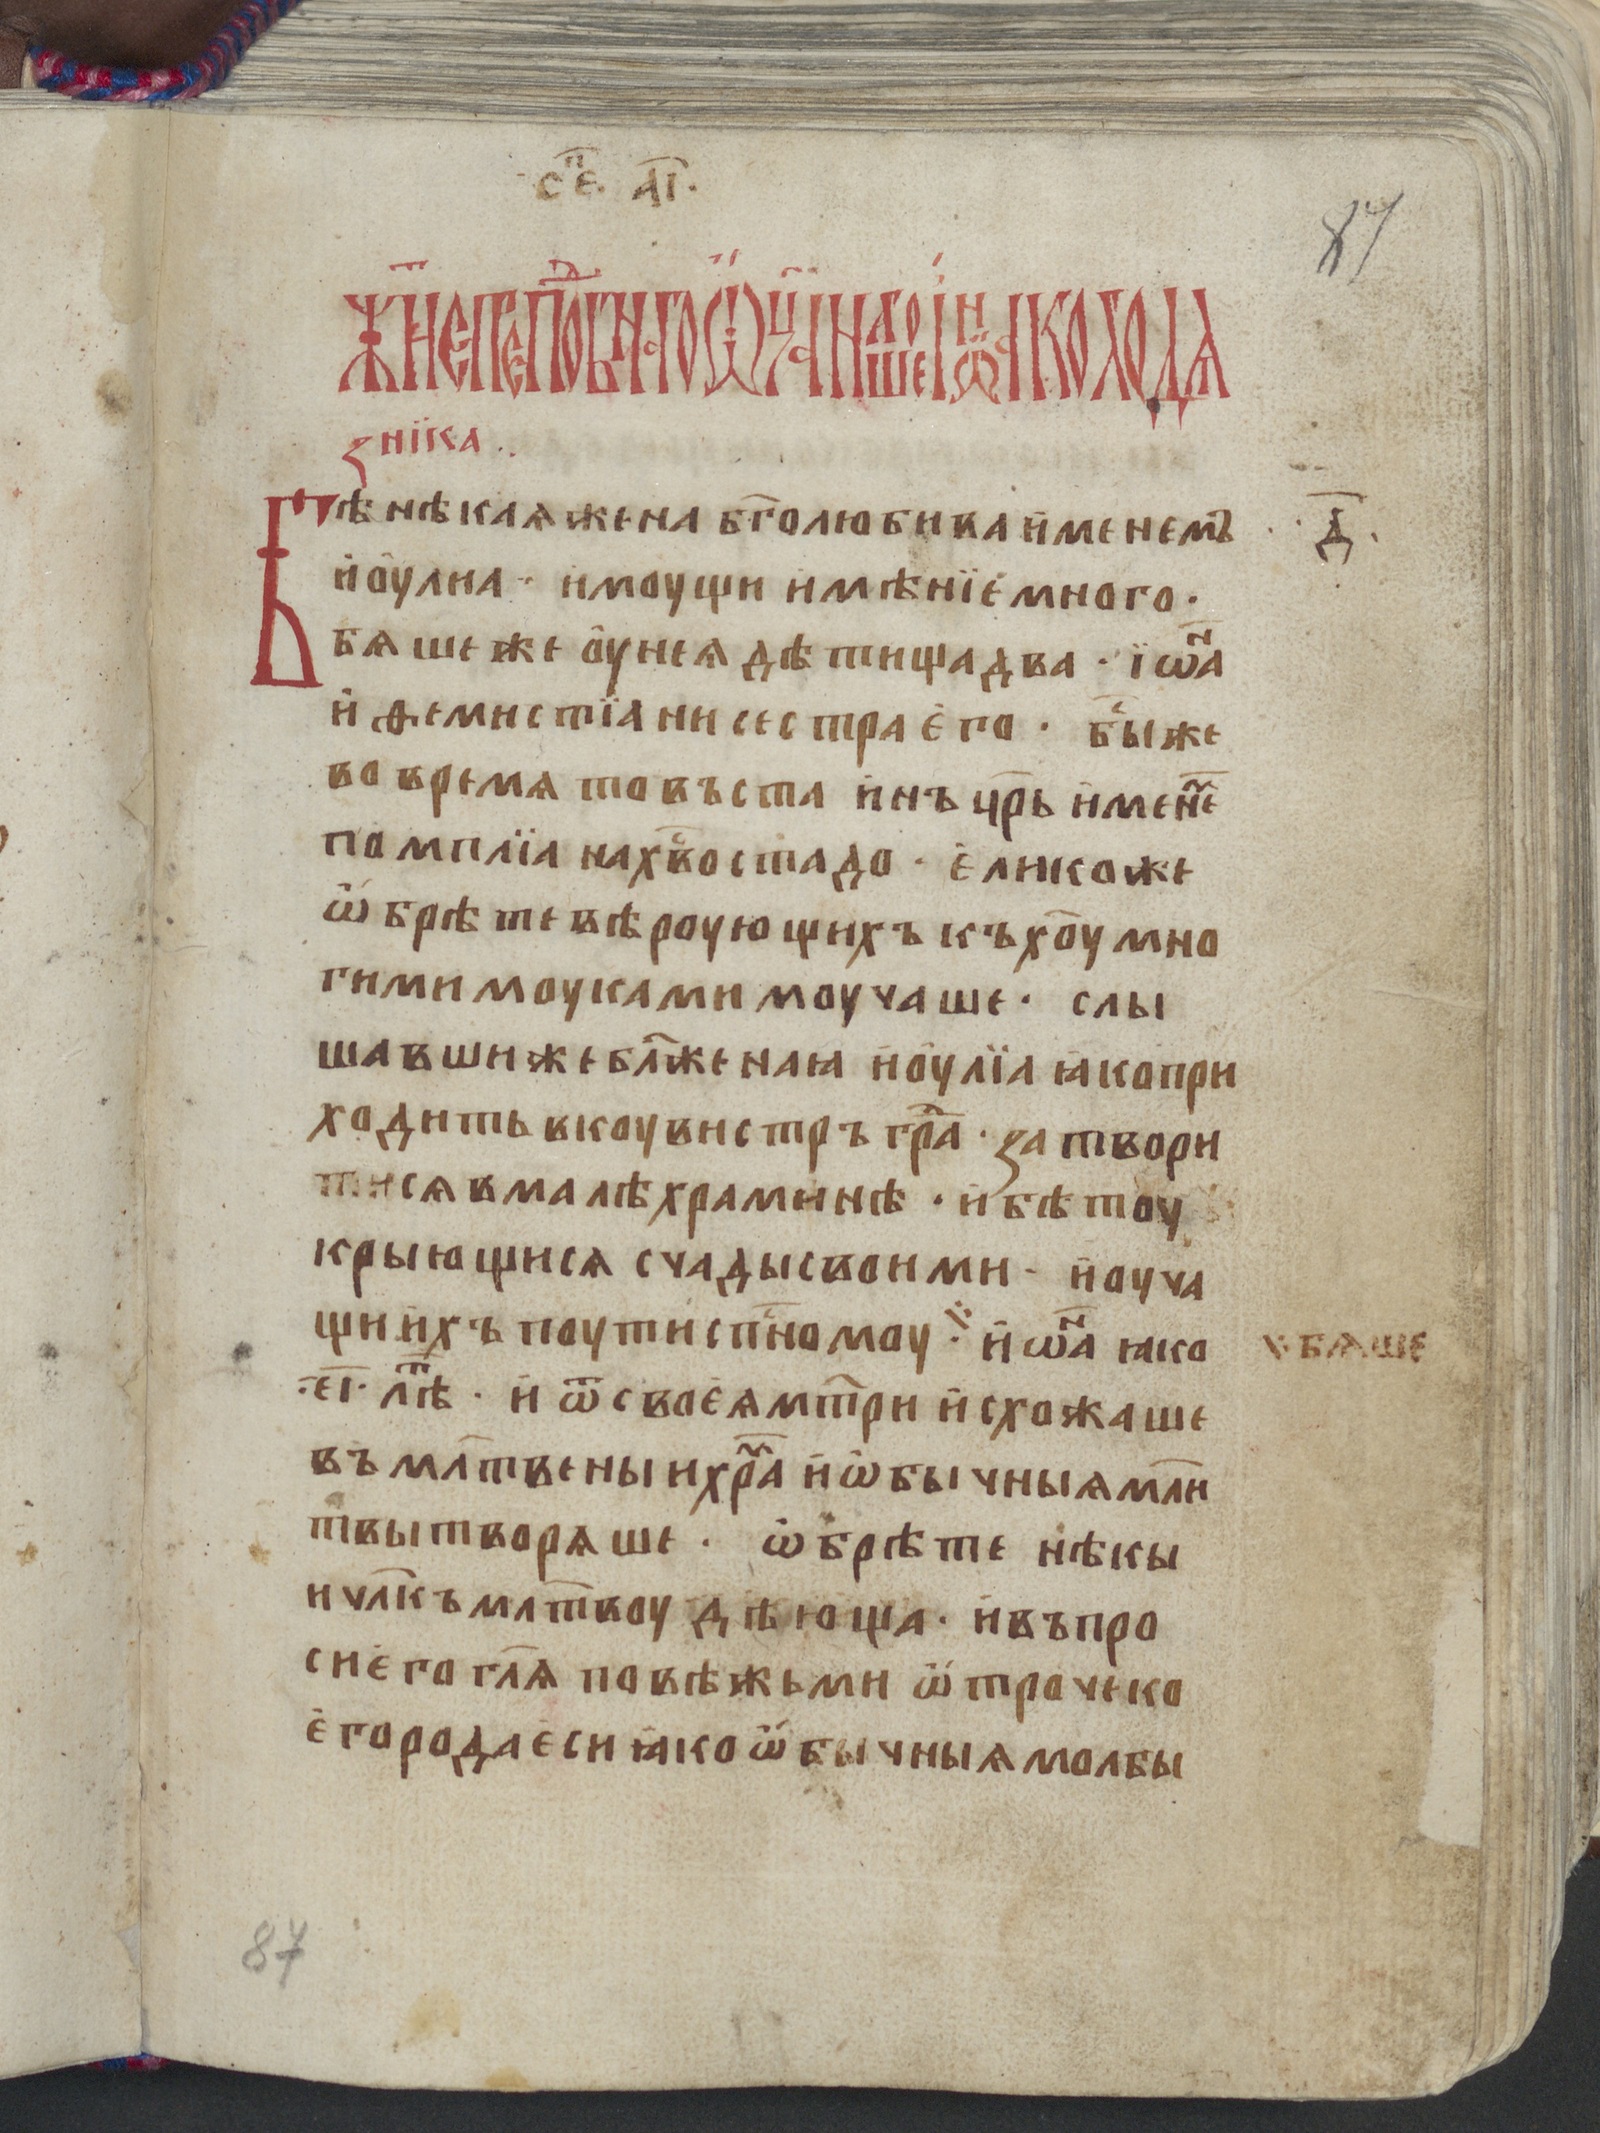 ·сп҃е· а҃і·
87
Жтїе преп҃двнаго ѿц҃а нашего іѡ҃на кокходѧ
зніка..
Бѣ нѣкаѧ жена бг҃олюбива и҆менемъ · д҃ ·
и҆оу҆лиа · и҆моущи и҆мѣнїе много ·
бѧше же оу҆ неѧ дѣтища два · ї ѡ҃на
и҆ ѳемистїани сестра є҆го · бы҃ же
во времѧ то въста и҆нъ цр҃ь и҆менемъ
помплїа на хв҃о стадо · є҆лико же
ѡ҆брѣте вѣроующихъ къ хо҃у мно
гими моуками моучаше · слы
шавши же бл҃женаꙗ и҆оу҆лїа ꙗ҆ко при
ходить в коувистръ гр҃а · затвори
тисѧ в малѣ храминѣ · и҆ бѣ тоу
крыющисѧ с чады своими · и҆ оуча
щи и҆хъ поути сп҃номоу ⁘ и҆ѡ҃на ꙗко ⁘ бѧше
·е҃і· лт҃ѣ · и҆ ѿ своеѧ мт҃ри и҆схожаше
въ мл҃твеныи хр҃ма и҆ ѡ҆бычныѧ мл҃и
твы творѧше · ѡ҆брѣте нѣкы
и чл҃къ мл҃твоу дѣюща · и҆ въпро
си є҆го гл҃ѧ повѣжь ми ѡ҆троче ко
є҆го рода є҆си ꙗ҆ко ѡ҆бычныѧ молбы
87